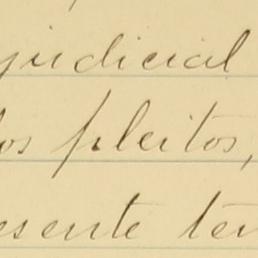 judicial
os pleitos,
esente ter